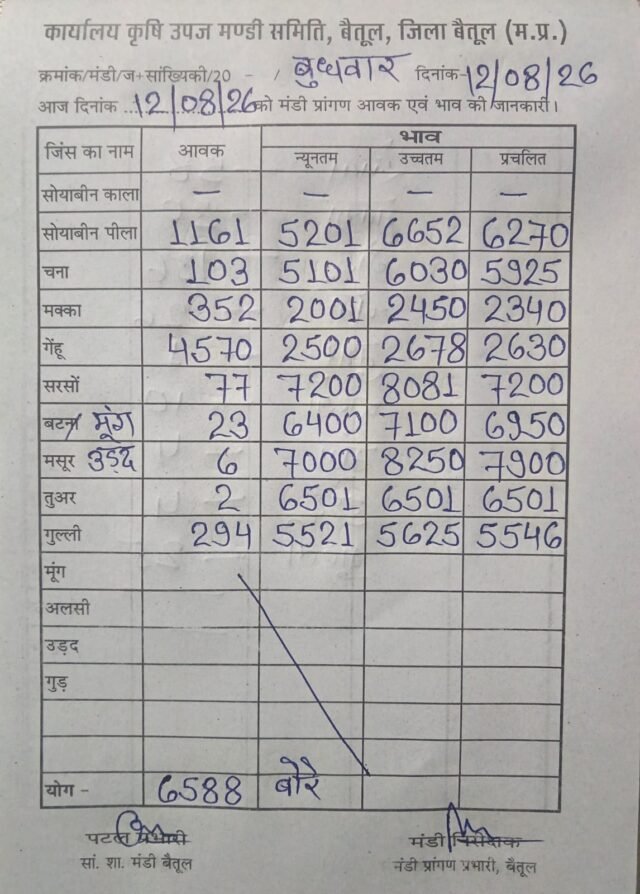 कार्यालय कृषि उपज मण्डी समिति, बैतूल, जिला बैतूल (म.प्र.)
क्रमांक/मंडी/ज+सांख्यिकी/20 - / बुधवार दिनांक 12/08/26
आज दिनांक ...12/08/26 को मंडी प्रांगण आवक एवं भाव की जानकारी।
जिंस का नाम आवक भाव
न्यूनतम उच्चतम प्रचलित
सोयाबीन काला — — — —
सोयाबीन पीला 1161 5201 6652 6270
चना 103 5101 6030 5925
मक्का 352 2001 2450 2340
गेंहू 4570 2500 2678 2630
सरसों 77 7200 8081 7200
बटना मूंग 23 6400 7100 6950
मसूर उड़द 6 7000 8250 7900
तुअर 2 6501 6501 6501
गुल्ली 294 5521 5625 5546
मूंग
अलसी
उड़द
गुड़
योग - 6588 बोरे
पटल प्रभारी मंडी निरीक्षक
सां. शा. मंडी बैतूल मंडी प्रांगण प्रभारी, बैतूल